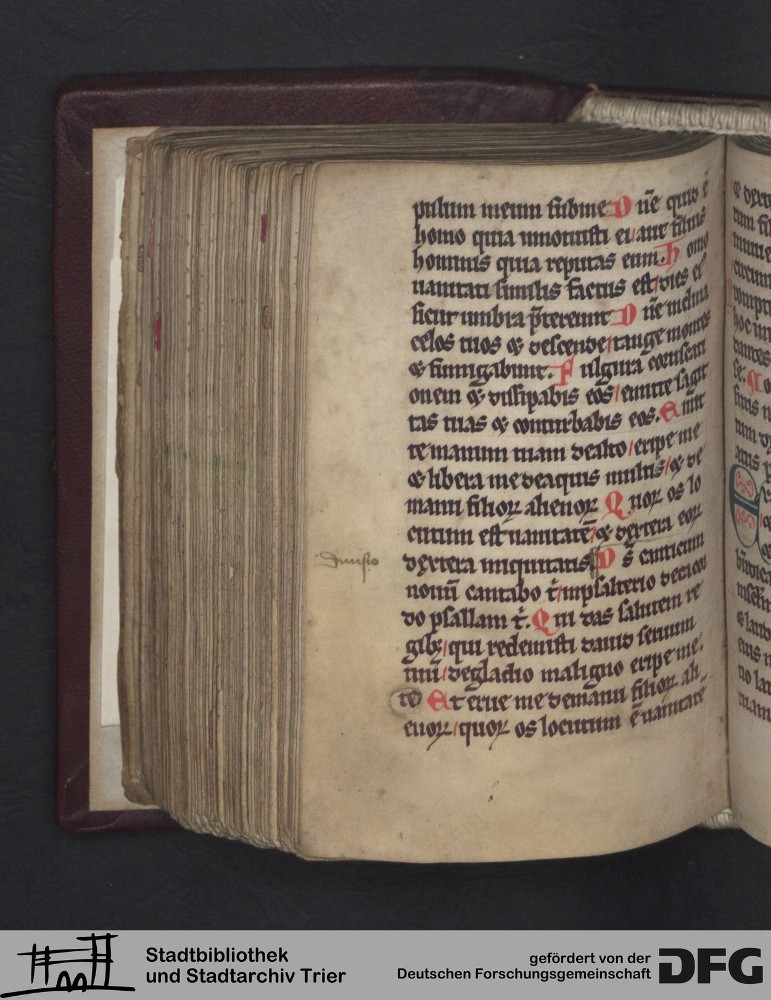 pulum meum sub me D ñe quid ẽ
homo quia innotuisti ei / aut filius
hominis quia reputas eum. h omo
uanitati similis factus est / dies ei
sicut umbra p̃tereunt D ñe inclina
celos tuos & descende / tange montes
& fumigabunt. F ulgura coruscati
onem & dissipabis eos / emitte sagit
tas tuas & conturbabis eos. E mitte
te manum tuam dealto / eripe me
& libera me deaquis multis / & de
manu filioꝝ alienoꝝ Q uoꝝ os lo
cutum est uanitatẽ / & dextera eoꝝ
dextera iniquitatis D s̃ canticum
diuisio
nouũ cantabo t̃ / inpsalterio decacor
do psallam t̃. Q ui das salutem re
gibꝫ / qui redemisti dauid seruum
tuũ / degladio maligno eripe me.
E t erue me demanu filioꝝ ali
enoꝝ / quoꝝ os locutum ẽ uanitatẽ
Stadtbibliothek
und Stadtarchiv Trier
gefördert von der
Deutschen Forschungsgemeinschaft
DFG